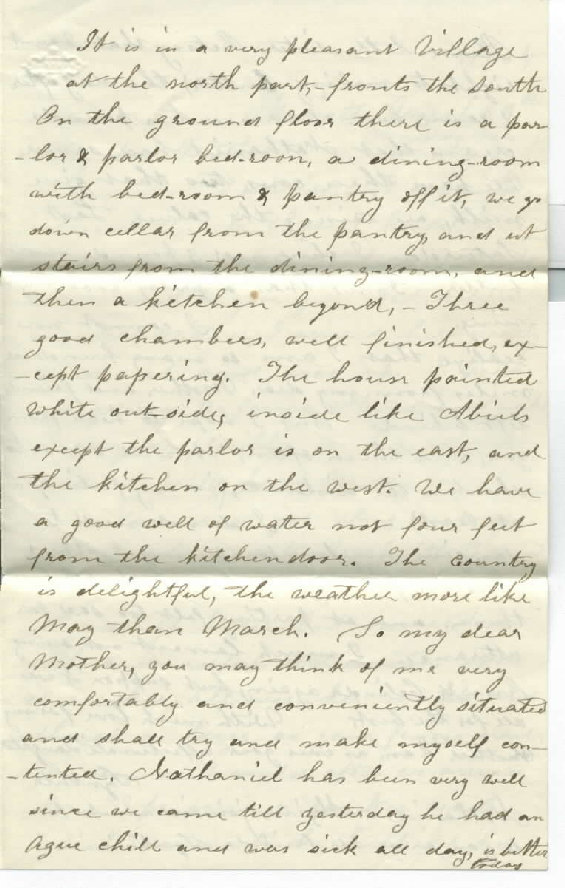 It is in a very pleasant Village
at the north part,- fronts the South
On the ground floor there is a par
-lor & parlor bed-room, a dining-room
with bed-room & pantry off it, we go
down cellar from the pantry and ut
stairs from the dining-room, and
then a kitchen beyond, - Three
good chambers, well finished, ex-
-cept papering. The house painted
white out-side, inside like Abiels
except the parlor is on the east, and
the kitchen on the west. We have
a good well of water not four feet
from the kitchen door. The country
is delightful, the weather more like
May than March. So my dear
Mother, you may think of me very
comfortably and conveniently situated
and shall try and make myself con-
-tented. Nathaniel has been very well
since we came till yesterday he had an
Ague chill and was sick all day, is better
today